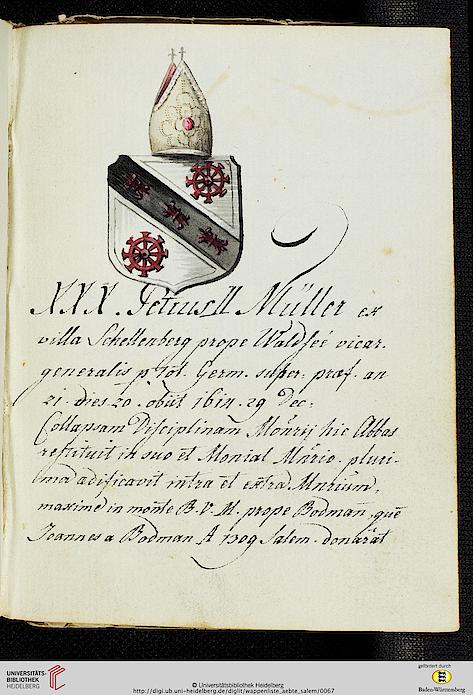 XXX. Petrus II Müller ex
villa Schellenberg prope Waldsée vicar.
generalis p tot. Germ. super: præf. an
21. dies 20. obiit 1614. 29 Dec:
Collapsam Disciplinam Mon̄rij hic Abbas
restituit in suo et Monial Mnrio. pluri-
ma ædificavit intra et extra Mnrium,
maxime in monte B. V. M. prope Bodman, quē
Joannes a Bodman A 1309 Salem. donarat
UNIVERSITÄTS-
BIBLIOTHEK
HEIDELBERG
© Universitätsbibliothek Heidelberg
http://digi.ub.uni-heidelberg.de/diglit/wappenliste_aebte_salem/0067
gefördert durch
Baden-Württemberg